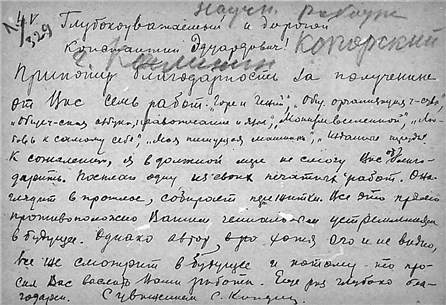 4 V
1/V 329
Научн. работн.
Глубокоуважаемый и дорогой
Константин Эдуардович! Копорский
г. Калинин
Приношу благодарность за получение
от Вас семь работ: „Горе и гений", „Общ. организация ч-ства",
„Общеч-ская азбука, правописание и язык", „Монизм вселенной", „Лю-
бовь к самому себе", „Моя пишущая машинка", „Изданные труды".
К сожалению, я в должной мере не смогу Вас благо-
дарить. Посылаю одну из своих печатных работ. Она
глядит в прошлое, собирает пережитки. Все это прямо
противоположно Вашим гениальным устремлениям
в будущее. Однако автор, хотя его и не видно,
все же смотрит в будущее и потому-то про-
сил Вас выслать Ваши работы. Еще раз глубоко бла-
годарен. С уважением С. Копорск